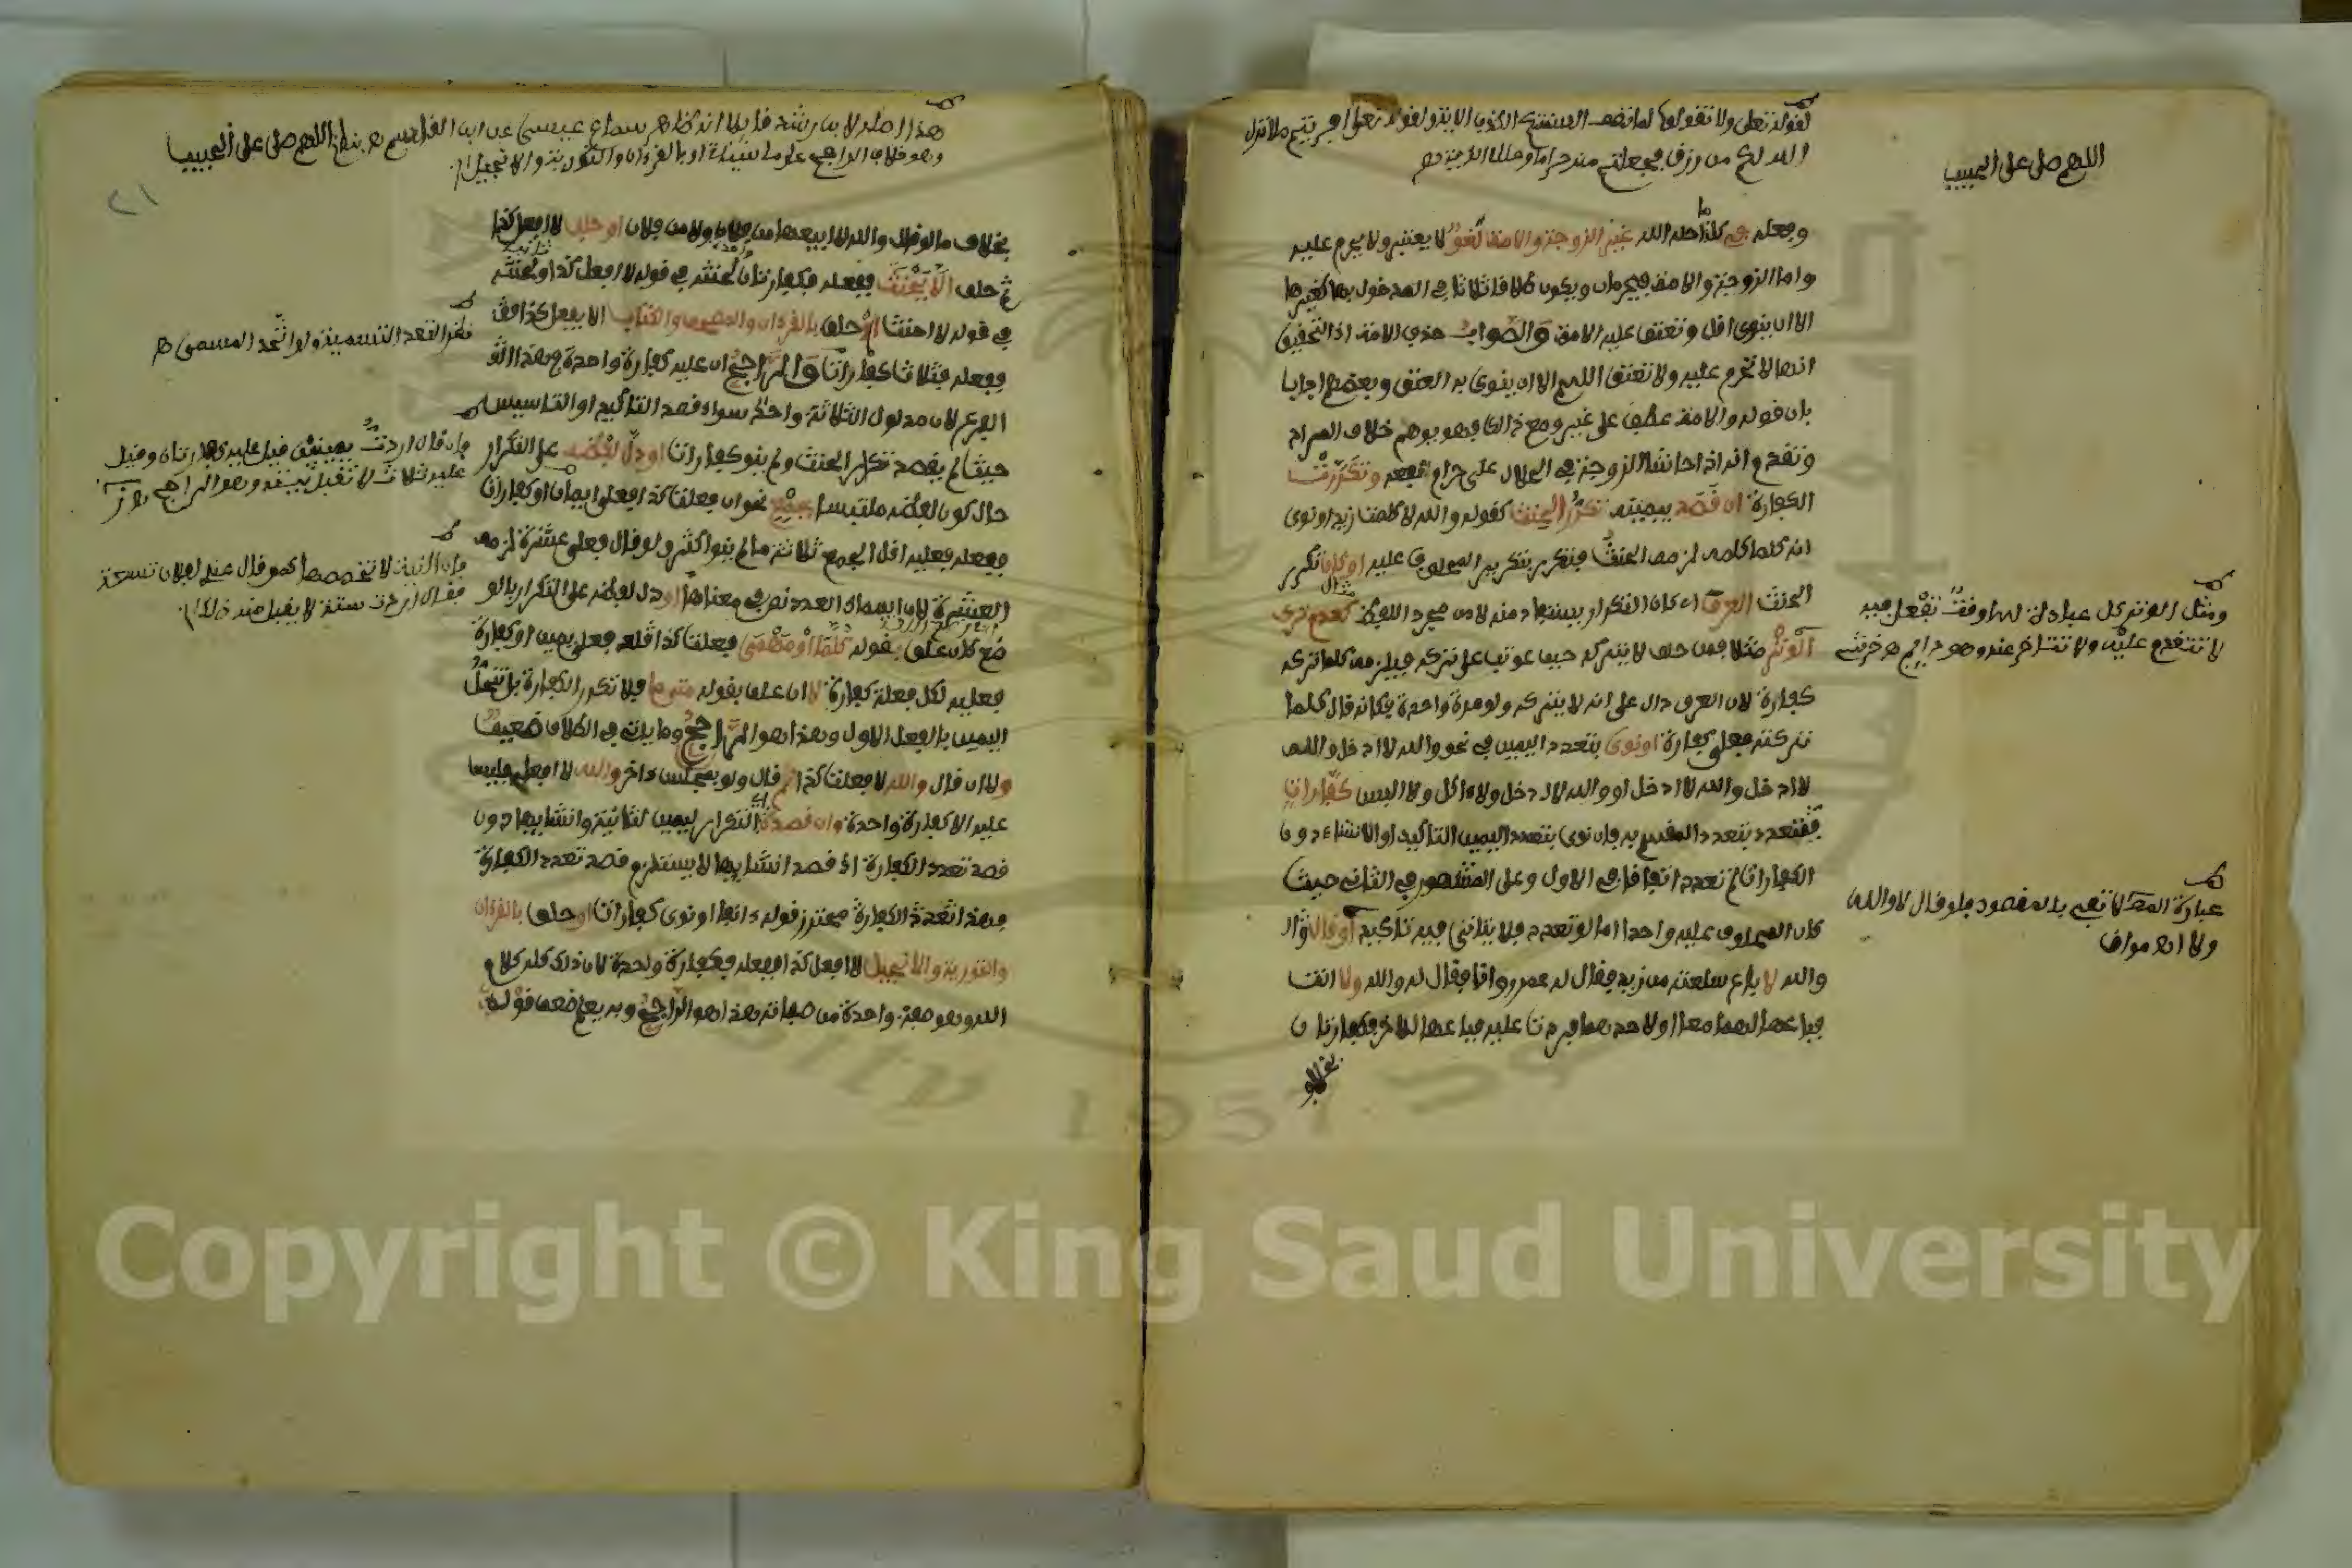 اللهم صل على الحبيب
لقوله تعلى ولا تقولوا لما تصف السنتكم الكذب الاية ولقوله تعلى افريتم ما انزل
الله لكم من رزق فجعلتم منه حراما وحلالا الاية هـ
وفعله في كل ما احله الله غير الزوجة والامة لغو لا يعتبر ولا يحرم عليه
واما الزوجة والامة فيحرمان ويكون طلاقا ثلاثا في المدخول بها كغيرها
الا ان ينوى اقل وتعتق عليه الامة والصواب حذف الامة اذ التحقيق
انها لا تحرم عليه ولا تعتق اللهم الا ان ينوى به العتق وبعضهم اجاب
بان قوله والامة عطف على غير ومع ذالك فهو يوهم خلاف المراد
وتقدم انه اذا حاشا الزوجة في الحلال على حرام نفعه وتكررت
الكفارة ان قصد بيمينه تكرر الحنث كقوله والله لا كلمت زيدا ونوى
انه كلما كلمه لزمه الحنث فتكرر بتكرير المحلوف عليه او كان تكرر
الحنث العرف اى كان التكرار يستفاد منه لا من مجرد اللفظ كعدم ترك
الوتر مثلا فمن حلف لا يتركه حيث عوتب على تركه فيلزمه كلما تركه
كفارة لان العرف دال على انه لا يتركه ولو مرة واحدة فكانه قال كلما
تركته فعلي كفارة او نوى بتعدد اليمين في نحو والله لا ادخل والله
لا ادخل والله لا ادخل او والله لا ادخل ولا ءاكل ولا البس كفارات
فتتعدد بتعدد المقسم به فان نوى بتعدد اليمين التاكيد او الانشاء دون
الكفارات لم تعدد اتفاقا في الاول وعلى المشهور في الثانى حيث
كان المحلوف عليه واحدا اما لو تعدد فلا يتاتى فيه تاكيد او قال
والله لا باع سلعته من زيد فقال له عمرو وانا فقال له والله ولا انت
فباعها لهما معا او لاحدهما فردت عليه فباعها للاخر فكفارتان
بخلاف
ومثل الوتر كل عبادة لها وقت تفعل فيه
لا تتقدم عليه ولا تتاخر عنه
عبارة المص لا تفي بالمقصود فلو قال لا والله
ولا
هذا اصله لابن رشد قايلا انه ظاهر سماع عيسى عن ابن القاسم هـ اللهم صل على الحبيب
وهو خلاف الراجح او بالقرءان والتورية والانجيل
٢١
بخلاف ما لو قال والله لا ابيعها من فلان ولا من فلان او حلف لا افعل كذا
ثم حلف الا يحنث ففعله فكفارتان لحنثه في قوله لا افعل كذا ولحنثه
في قوله لا احنث او حلف بالقرءان والمصحف والكتاب الا يفعل كذا
ففعله فثلاث كفارات والراجح ان عليه كفارة واحدة في هذا
الفرع لان مدلول الثلاثة واحد سواء قصد التاكيد او التاسيس
حيث لم يقصد تكرار الحنث ولم ينو كفارات او دل لفظه على التكرار
حال كون لفظه ملتبسا بجمع نحو ان فعلت كذا فعلي ايمان او كفارات
ففعله فعليه اقل الجمع ثلاثة ما لم ينو اكثر ولو قال فعلي عشرة لزمه
العشرة لان اسماء العدد نص في معناها او دل لفظه على التكرار بالوـ
ضع كان علق بقوله كلما او مهما فعلت كذا فعلي يمين او كفارة
فعليه لكل فعلة كفارة لا ان علق بقوله متى ما فلا تكرر الكفارة بل تنحل
اليمين بالفعل الاول وهذا هو الراجح وما ياتى في الطلاق ضعيف
ولا ان قال والله لا فعلت كذا ثم قال ولو بمجلس ءاخر والله لا افعله فليس
عليه الا كفارة واحدة وان قصد التكرار ليمين الثانية وانشاءها دون
قصد تعدد الكفارة اذ قصد انشاءها لا يستلزم قصد تعدد الكفارة
محترز قوله ءانفا او نوى كفارات او حلف بالقرءان
والتورية والانجيل لا افعل كذا ففعله فكفارة واحدة لان ذلك كله كلام
الله وهو صفة واحدة من صفاته هذا هو الراجح وبه يعلم ضعف قوله
نظرا لتعدد التسمية ولو اتحد المسمى هـ
وان قال اردت بيمينى قيل عليه كفارتان وقيل
عليه ثلاث لا تقبل نيته وهو الراجح
فان النية لا تخصصه كمن قال عندى لفلان تسعة
فقال اردت ستة لا يقبل منه ذلك